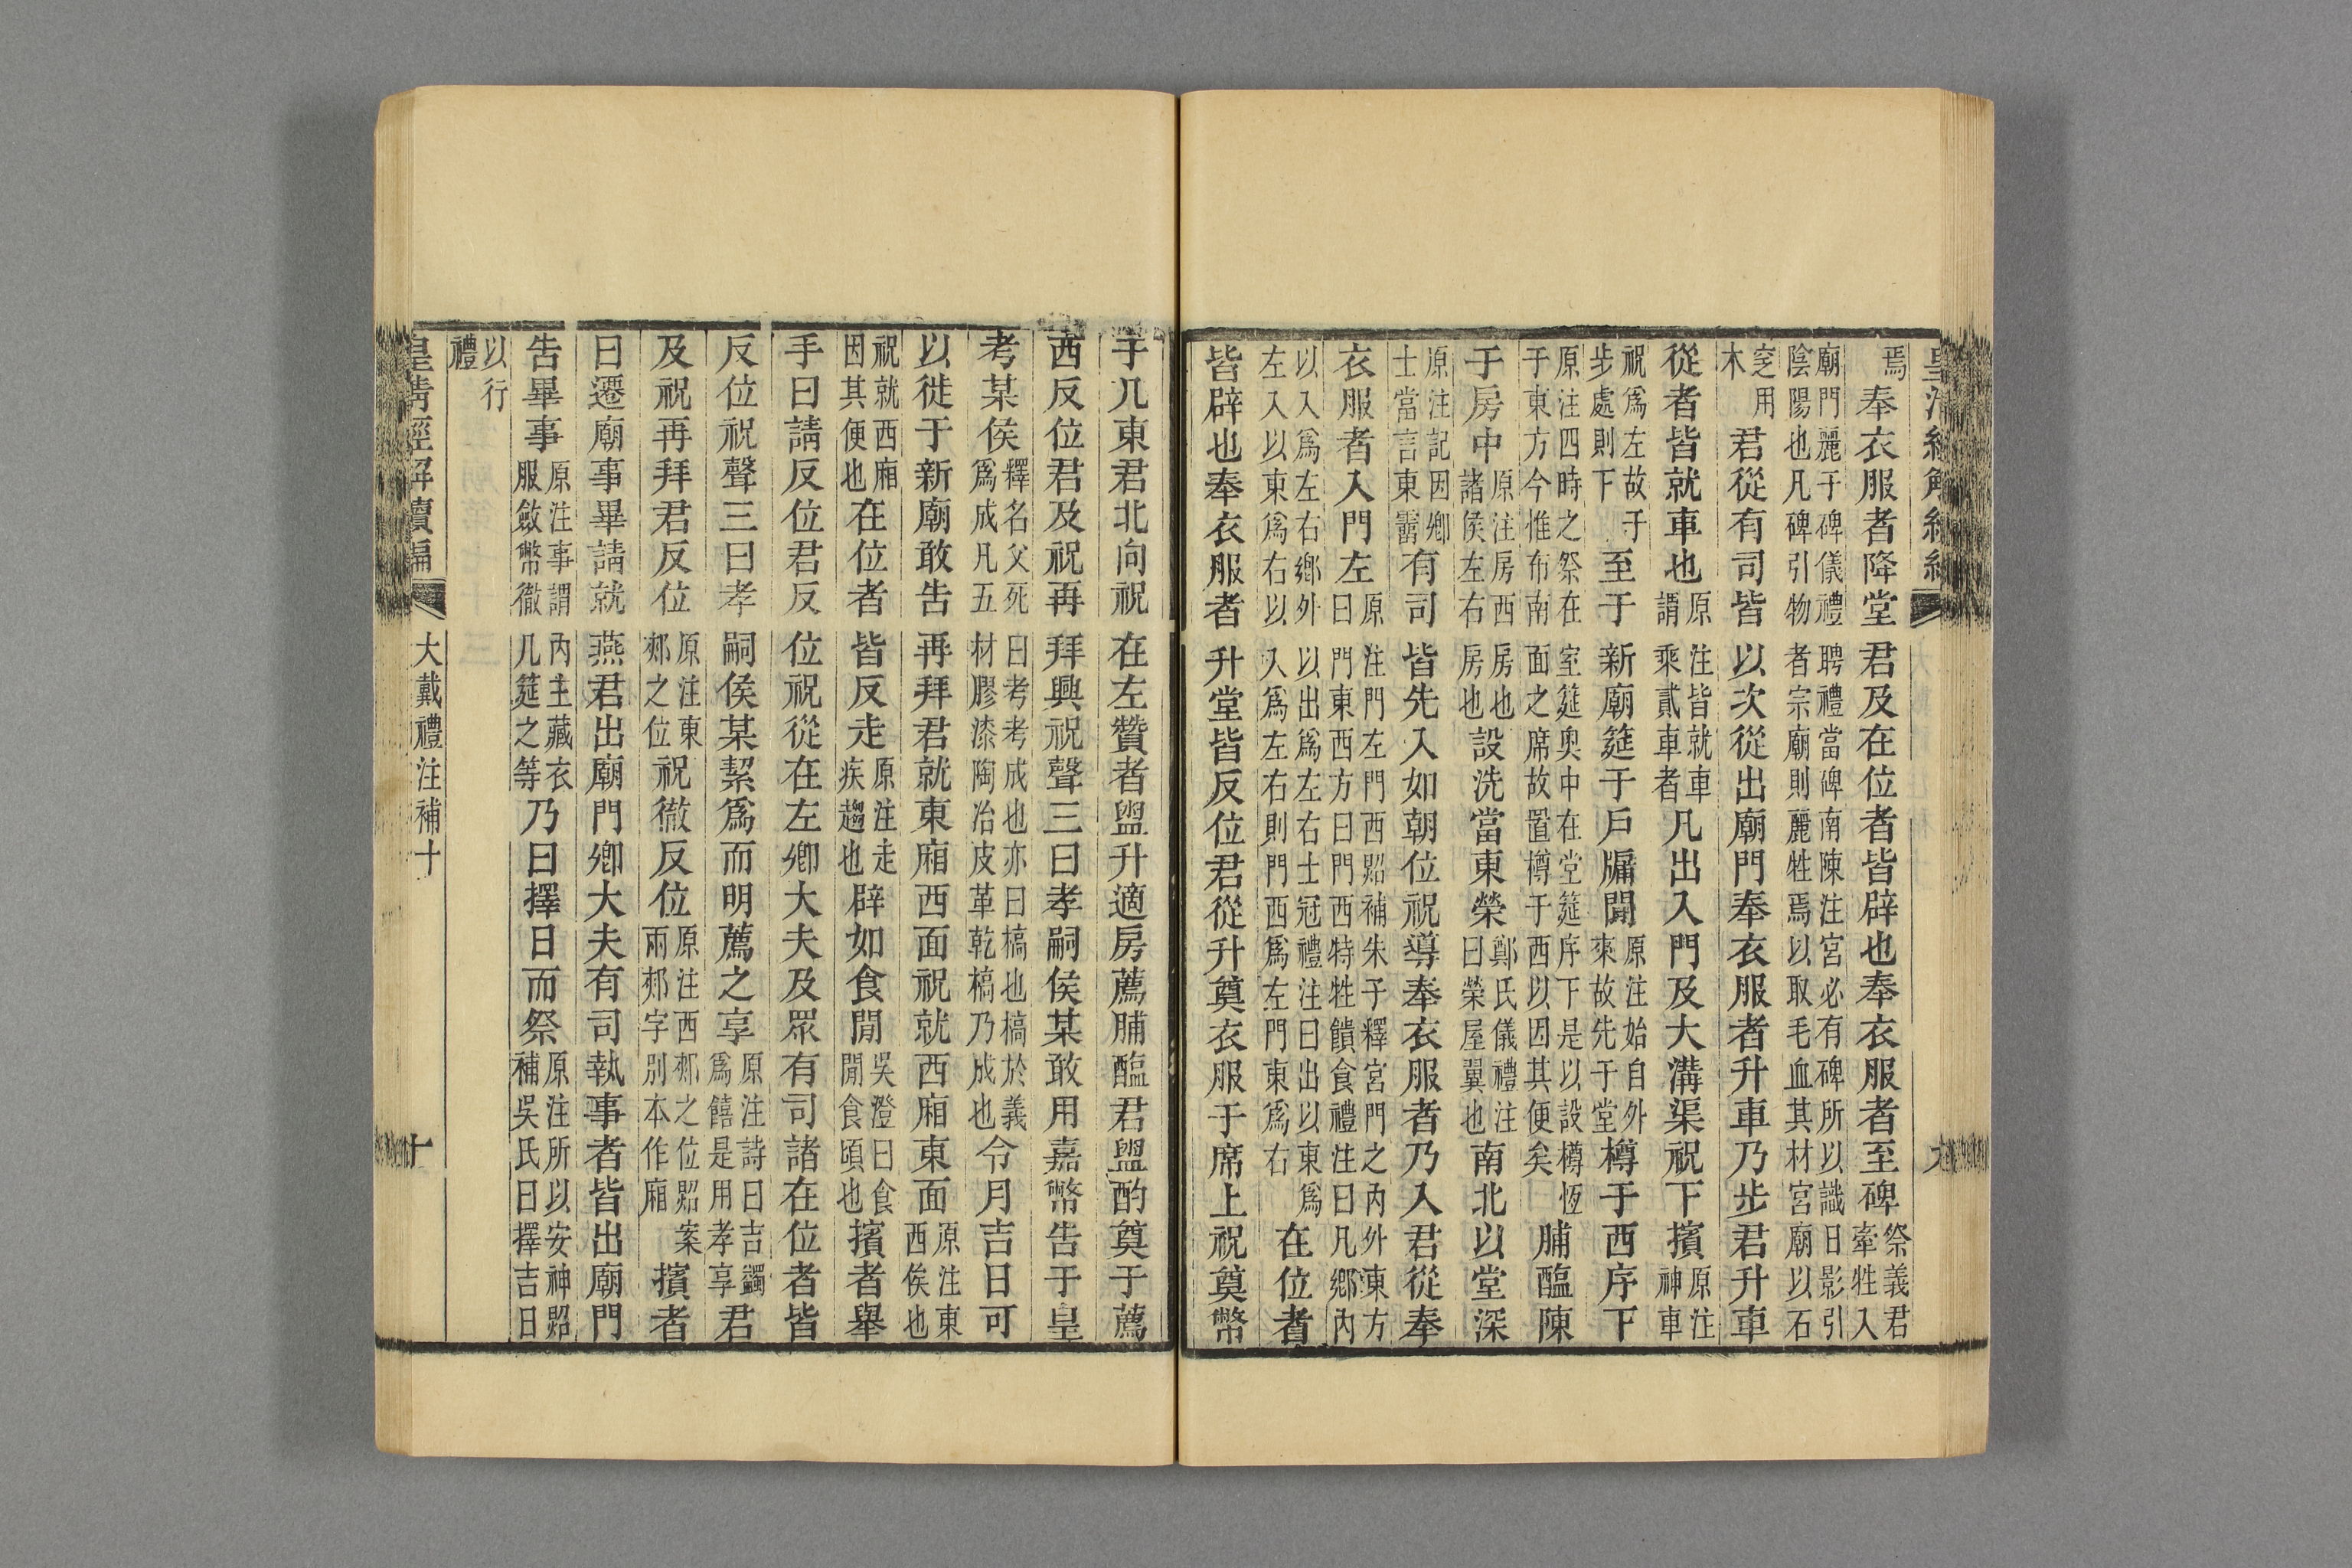 皇清經解續編 九
焉奉衣服者降堂君及在位者皆辟也奉衣服者至碑祭義君牽牲入
廟門麗于碑儀禮聘禮當碑南陳注宮必有碑所以識日影引陰陽也凡碑引物者宗廟則麗牲焉以取毛血其材宮廟以石
窆用木君從有司皆以次從出廟門奉衣服者升車乃步君升車
從者皆就車也原注皆就車謂乘貳車者凡出入門及大溝渠祝下擯原注神車
祝爲左故于步處則下至于新廟筵于戶牖閒原注始自外來故先于堂樽于西序下
原注四時之祭在室筵奥中在堂筵序下是以設樽恆于東方今惟布南面之席故置樽于西以因其便矣脯醢陳
于房中原注房西房也諸侯左右房也設洗當東榮鄭氏儀禮注曰榮屋翼也南北以堂深
原注記因鄉士當言東霤有司皆先入如朝位祝導奉衣服者乃入君從奉
衣服者入門左原注門左門西照補朱子釋宮門之內外東方曰門東西方曰門西特牲饋食禮注曰凡鄉內
以入爲左右鄉外以出爲左右士冠禮注曰出以東爲左入以東爲右以入爲左右則門西爲左門東爲右在位者
皆辟也奉衣服者升堂皆反位君從升奠衣服于席上祝奠幣
于几東君北向祝在左贊者盥升適房薦脯醢君盥酌奠于薦
西反位君及祝再拜興祝聲三曰孝嗣侯某敢用嘉幣告于皇
考某侯釋名父死曰考考成也亦曰槁也槁於義爲成凡五材膠漆陶冶皮革乾槁乃成也令月吉日可
以徙于新廟敢告再拜君就東廂西面祝就西廂東面原注東西俟也
祝就西廂因其便也在位者皆反走原注走疾趨也辟如食閒吳澄曰食閒食頃也擯者舉
手曰請反位君反位祝從在左卿大夫及眾有司諸在位者皆
反位祝聲三曰孝嗣侯某絜爲而明薦之享原注詩曰吉蠲爲饎是用孝享君
及祝再拜君反位原注東郲之位祝徹反位原注西郲之位照案兩郲字別本作廂擯者
曰遷廟事畢請就燕君出廟門卿大夫有司執事者皆出廟門
告畢事原注事謂內主藏衣服斂幣徹几筵之等乃曰擇日而祭原注所以安神照補吳氏曰擇吉日
以行禮
皇清經解續編 大戴禮注補十 十